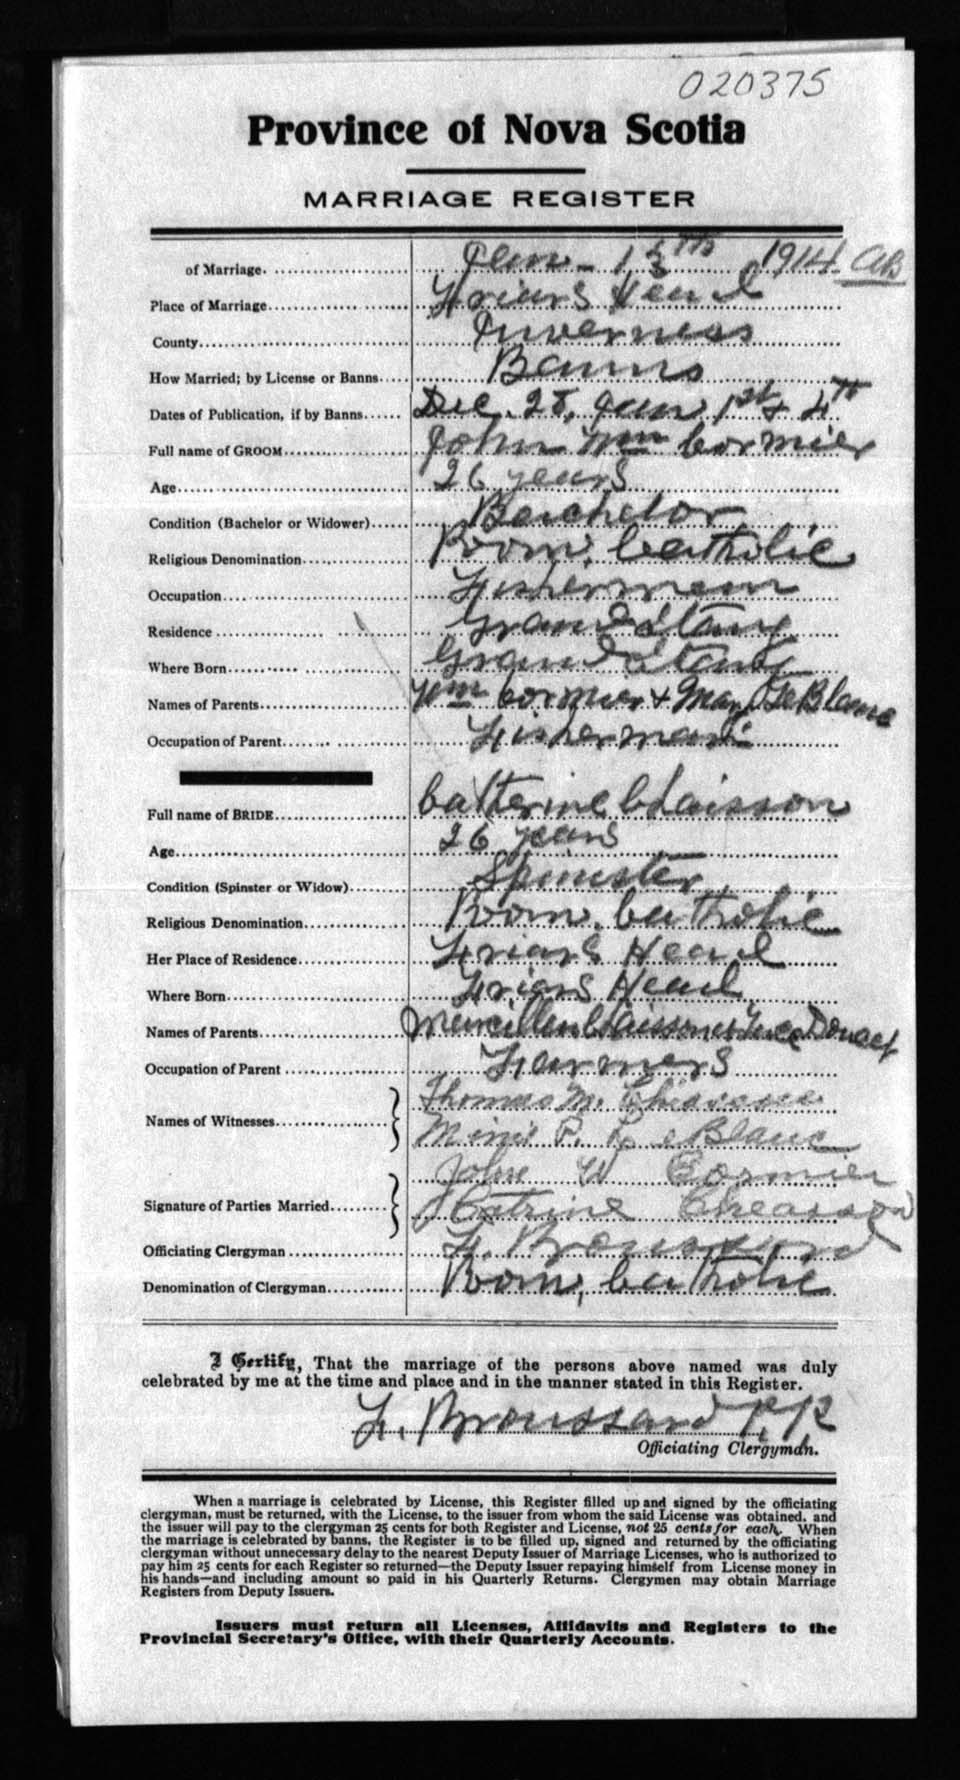 020375
Province of Nova Scotia
MARRIAGE REGISTER
of Marriage Jan - 13th 1914
Place of Marriage Friars Head
County Inverness
How Married; by License or Banns Banns
Dates of Publication, if by Banns Dec. 28, Jan 1st & 4th
Full name of GROOM John Wm Cormier
Age 26 years
Condition (Bachelor or Widower) Bachelor
Religious Denomination Rom. Catholic
Occupation Fisherman
Residence Grand Etang
Where Born Grand Etang
Names of Parents Wm Cormier & Mary LeBlanc
Occupation of Parent Fisherman
Full name of BRIDE Catherine Chiasson
Age 26 years
Condition (Spinster or Widow) Spinster
Religious Denomination Rom. Catholic
Her Place of Residence Friars Head
Where Born Friars Head
Names of Parents Chiasson Doucet
Occupation of Parent Farmers
Names of Witnesses Thomas M.
P. LeBlanc
John W Cormier
Signature of Parties Married Catrine Cheasson
Officiating Clergyman F. Broussard
Denomination of Clergyman Rom. Catholic
I Certify, That the marriage of the persons above named was duly
celebrated by me at the time and place and in the manner stated in this Register.
F. Broussard P.P.
Officiating Clergyman.
When a marriage is celebrated by License, this Register filled up and signed by the officiating
clergyman, must be returned, with the License, to the issuer from whom the said License was obtained, and
the issuer will pay to the clergyman 25 cents for both Register and License, not 25 cents for each. When
the marriage is celebrated by banns, the Register is to be filled up, signed and returned by the officiating
clergyman without unnecessary delay to the nearest Deputy Issuer of Marriage Licenses, who is authorized to
pay him 25 cents for each Register so returned—the Deputy Issuer repaying himself from License money in
his hands—and including amount so paid in his Quarterly Returns. Clergymen may obtain Marriage
Registers from Deputy Issuers.
Issuers must return all Licenses, Affidavits and Registers to the
Provincial Secretary's Office, with their Quarterly Accounts.